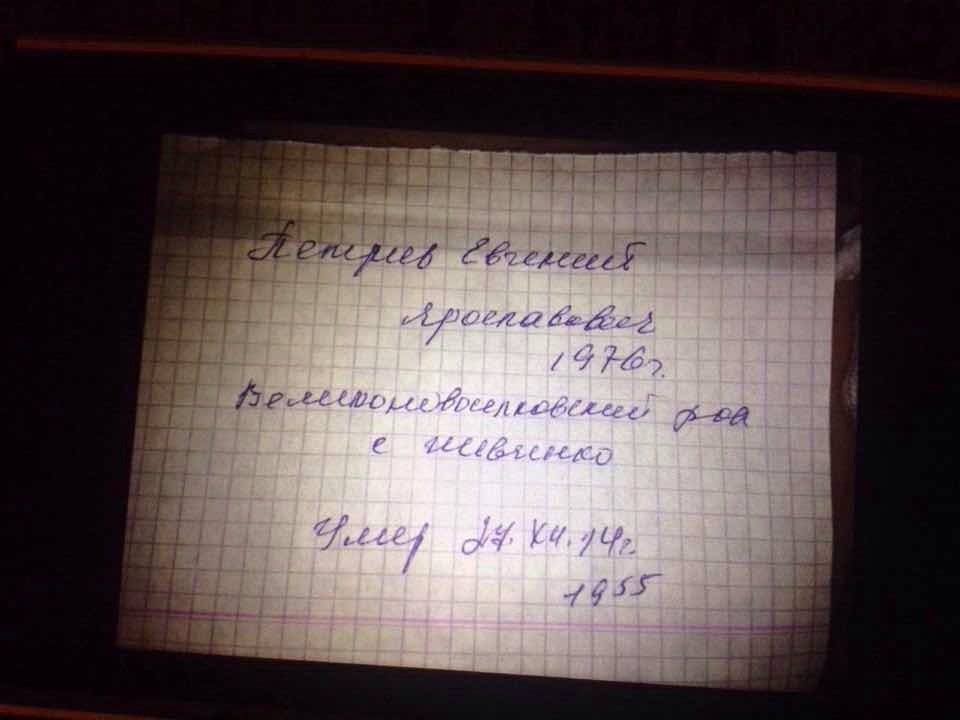 Петрив Евгений
Ярославович
1976г.
Великоновоселковский рон
с Шевченко
Умер 27.XII.14г.
19⁵⁵